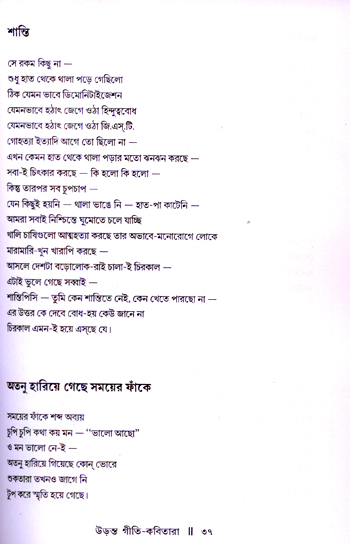 শান্তি
সে রকম কিছু না —
শুধু হাত থেকে থালা পড়ে গেছিলো
ঠিক যেমন ভাবে ডিমোনিটাইজেশন
যেমনভাবে হঠাৎ জেগে ওঠা হিন্দুত্ববোধ
যেমনভাবে হঠাৎ জেগে ওঠা জি.এস্.টি.
গোহত্যা ইত্যাদি আগে তো ছিলো না —
এখন কেমন হাত থেকে থালা পড়ার মতো ঝনঝন করছে —
সবা-ই চিৎকার করছে — কি হলো কি হলো —
কিন্তু তারপর সব চুপচাপ —
যেন কিছুই হয়নি — থালা ভাঙে নি — হাত-পা কাটেনি —
আমরা সবাই নিশ্চিন্তে ঘুমোতে চলে যাচ্ছি
খালি চাষিগুলো আত্মহত্যা করছে তার অভাবে-মনোরোগে লোকে
মারামারি-খুন খারাপি করছে —
আসলে দেশটা বড়োলোক-রাই চালা-ই চিরকাল —
এটাই ভুলে গেছে সব্বাই —
শান্তিপিসি — তুমি কেন শান্তিতে নেই, কেন খেতে পারছো না —
এর উত্তর কে দেবে বোধ-হয় কেউ জানে না
চিরকাল এমন-ই হয়ে এস্‌ছে যে।
অতনু হারিয়ে গেছে সময়ের ফাঁকে
সময়ের ফাঁকে শব্দ অব্যয়
চুপি চুপি কথা কয় মন — “ভালো আছো”
ও মন ভালো নে-ই —
অতনু হারিয়ে গিয়েছে কোন্ ভোরে
শুকতারা তখনও জাগে নি
টুপ করে স্মৃতি হয়ে গেছে।
উড়ন্ত গীতি-কবিতারা ॥ ৩৭